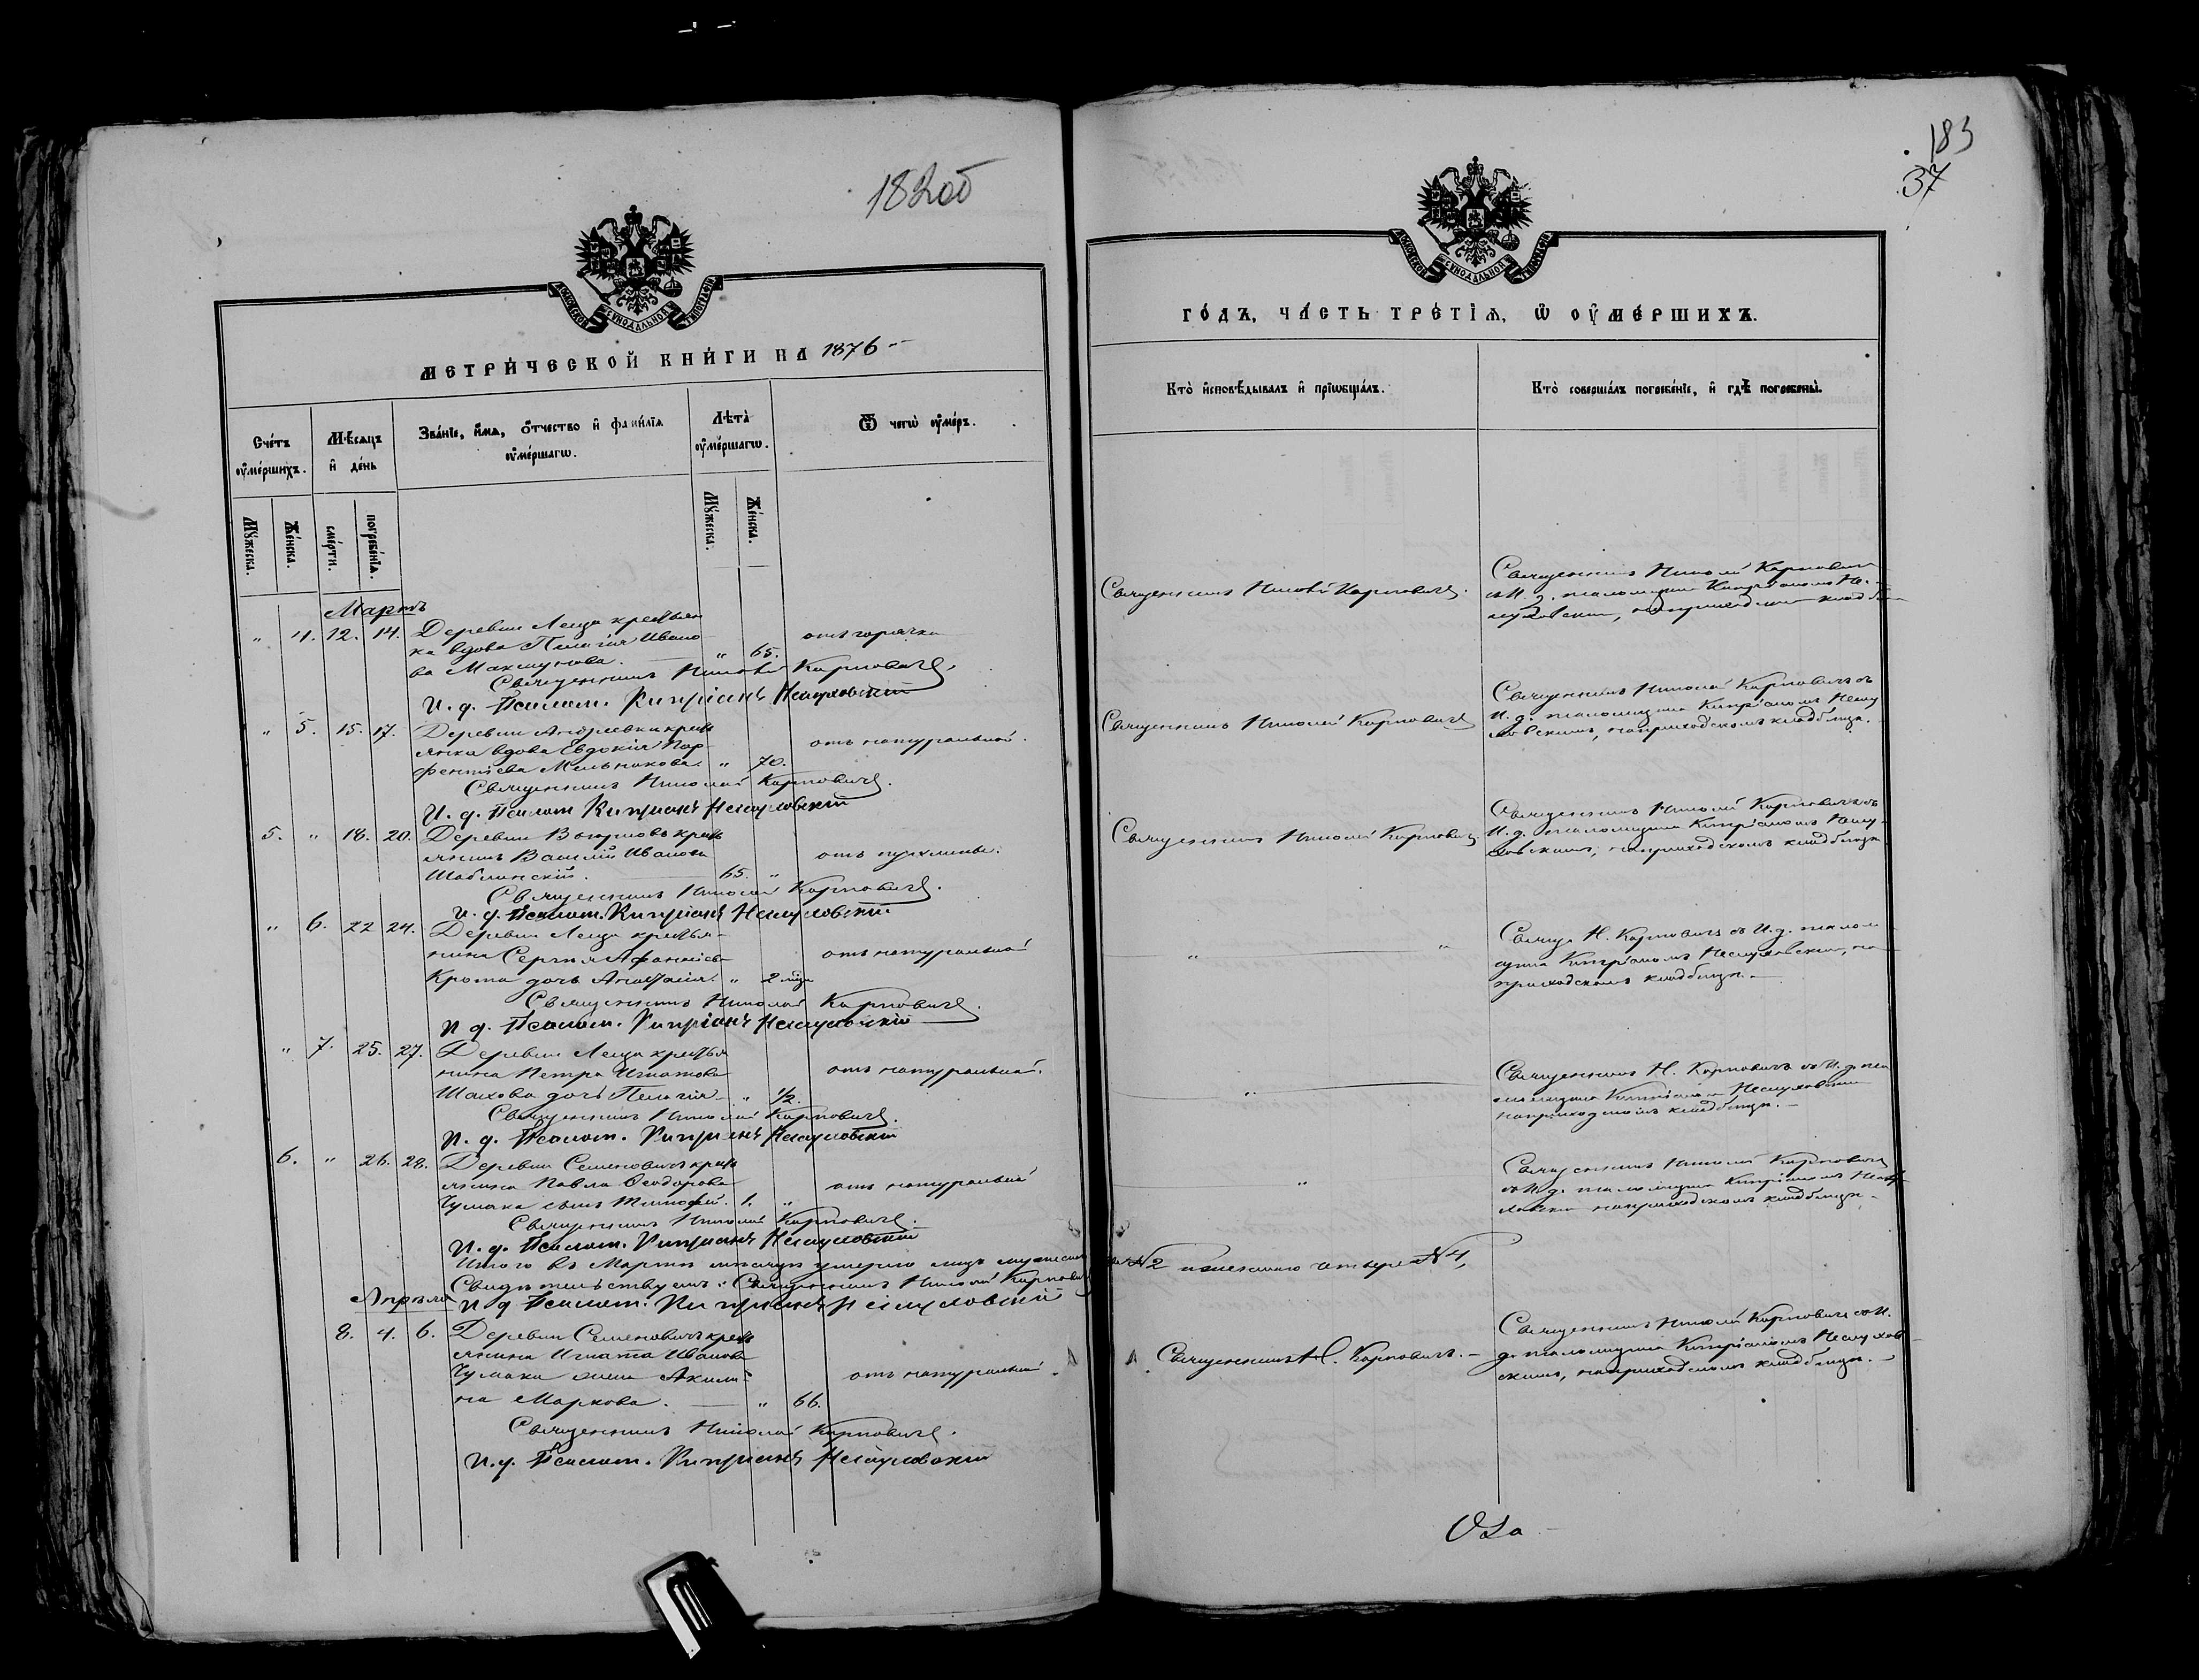 182об
МЕТРИЧЕСКОЙ КНИГИ НА 1876
Счетъ оумершихъ.
Мѣсяцъ и день
Званіе, имя, отчество и фамилія оумершагѡ.
Лѣта оумершагѡ.
Ѿ чегѡ оумеръ.
Мужеска.
Женска.
смерти.
погребенія.
Мужеска.
Женска.
Мартъ
" 4. 12. 14. Деревни Леща крестьян
ка вдова Пелагія Ивано
ва . " 65. отъ горячки
Священникъ Николай Карповичъ.
И. д. Псалом. Кипріанъ Неслуховскій
" 5. 15. 17. Деревни Андреевки крест
янка вдова Евдокія Пар-
фентіева Мельникова " 70. отъ натуральной.
Священникъ Николай Карповичъ.
И. д. Псалом. Кипріанъ Неслуховскій
5. " 18. 20. Деревни крест
янинъ Василій Иванова
Шаблинскій. 65. "
Священникъ Николай Карповичъ.
И. д. Псалом. Кипріанъ Неслуховскій
" 6. 22 24. Деревни Леща крестья-
нина Сергія
Крота дочь Анастасія. " 2 отъ натуральной
Священникъ Николай Карповичъ.
И. д. Псалом. Кипріанъ Неслуховскій
" 7. 25. 27. Деревни Леща крестья
нина Петра Игнатова
дочь Пелагія " 1/2. отъ натуральной.
Священникъ Николай Карповичъ.
И. д. Псалом. Кипріанъ Неслуховскій
6. " 26. 28. Деревни Семеновичъ крест
янина Павла Ѳеодорова
Чумака сынъ Тимофей. 1. " отъ натуральной
Священникъ Николай Карповичъ.
И. д. Псалом. Кипріанъ Неслуховскій
Итого въ Мартѣ мѣсяцѣ умерло лицъ мужеска № 2 женскаго четыре № 4,
Свидѣтельствуемъ: Священникъ Николай Карповичъ
Апрѣля И. д. Псалом. Кипріанъ Неслуховскій
8. 4. 6. Деревни Семеновичъ крест
янина Игната Иванова
Чумака жена Акили-
на Маркова. " 66. отъ натуральной
Священникъ Николай Карповичъ.
И. д. Псалом. Кипріанъ Неслуховскій
183
37
ГОДЪ, ЧАСТЬ ТРЕТІЯ, Ѿ ОУМЕРШИХЪ.
Кто исповѣдывалъ и пріѡбщалъ.
Кто совершалъ погребеніе, и гдѣ погребены.
Священникъ Николай Карповичъ.
Священникъ Николай Карповичъ
съ И. д. псаломщика Кипріаномъ Не-
слуховскимъ, на приходскомъ кладби
Священникъ Николай Карповичъ
Священникъ Николай Карповичъ съ
И. д. псаломщика Кипріаномъ Неслу
ховскимъ, на приходскомъ кладбищѣ.
Священникъ Николай Карповичъ
Священникъ Николай Карповичъ съ
И. д. псаломщика Кипріаномъ Неслу-
ховскимъ, на приходскомъ кладбищѣ
" "
Священ. Н. Карповичъ съ И. д. псалом
щика Кипріаномъ Неслуховскимъ, на
приходскомъ кладбищѣ.
"
Священникъ Н. Карповичъ съ И. д. пса
ломщика Кипріаномъ Неслуховскимъ
на приходскомъ кладбищѣ.
"
Священникъ Николай Карповичъ
съ И. д. псаломщика Кипріаномъ Неслу-
ховскимъ на приходскомъ кладбищѣ.
Священникъ Н. Карповичъ.
Священникъ Николай Карповичъ съ И.
д. псаломщика Кипріаномъ Неслухов
скимъ, на приходскомъ кладбищѣ.